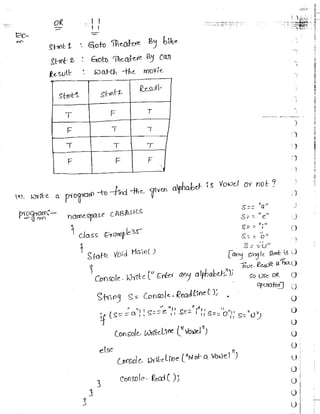 OR | |
EX:-
Stmt 1 : Goto Theatre By bike
Stmt 2 : Goto Theatre By Car
Result : Watch the movie
Stmt1 Stmt2 Result
T F T
F T T
T T T
F F F
write a program to find the given alphabet is vowel or not ?
Program:-
namespace CABASICS
{
class Example35
{
static void Main()
{
Console.Write("Enter any alphabet:");
String S= Console.ReadLine();
if (S=="a"||S=="e"||S=="i"||S=="o"||S="u")
Console.WriteLine("Vowel");
else
Console.WriteLine("Not a Vowel")
Console.Read();
}
}
}
S== "a"
S== "e"
S== "i"
S== "o"
S== "u"
[any single Stmt is
True Result is True
so use OR
operator]